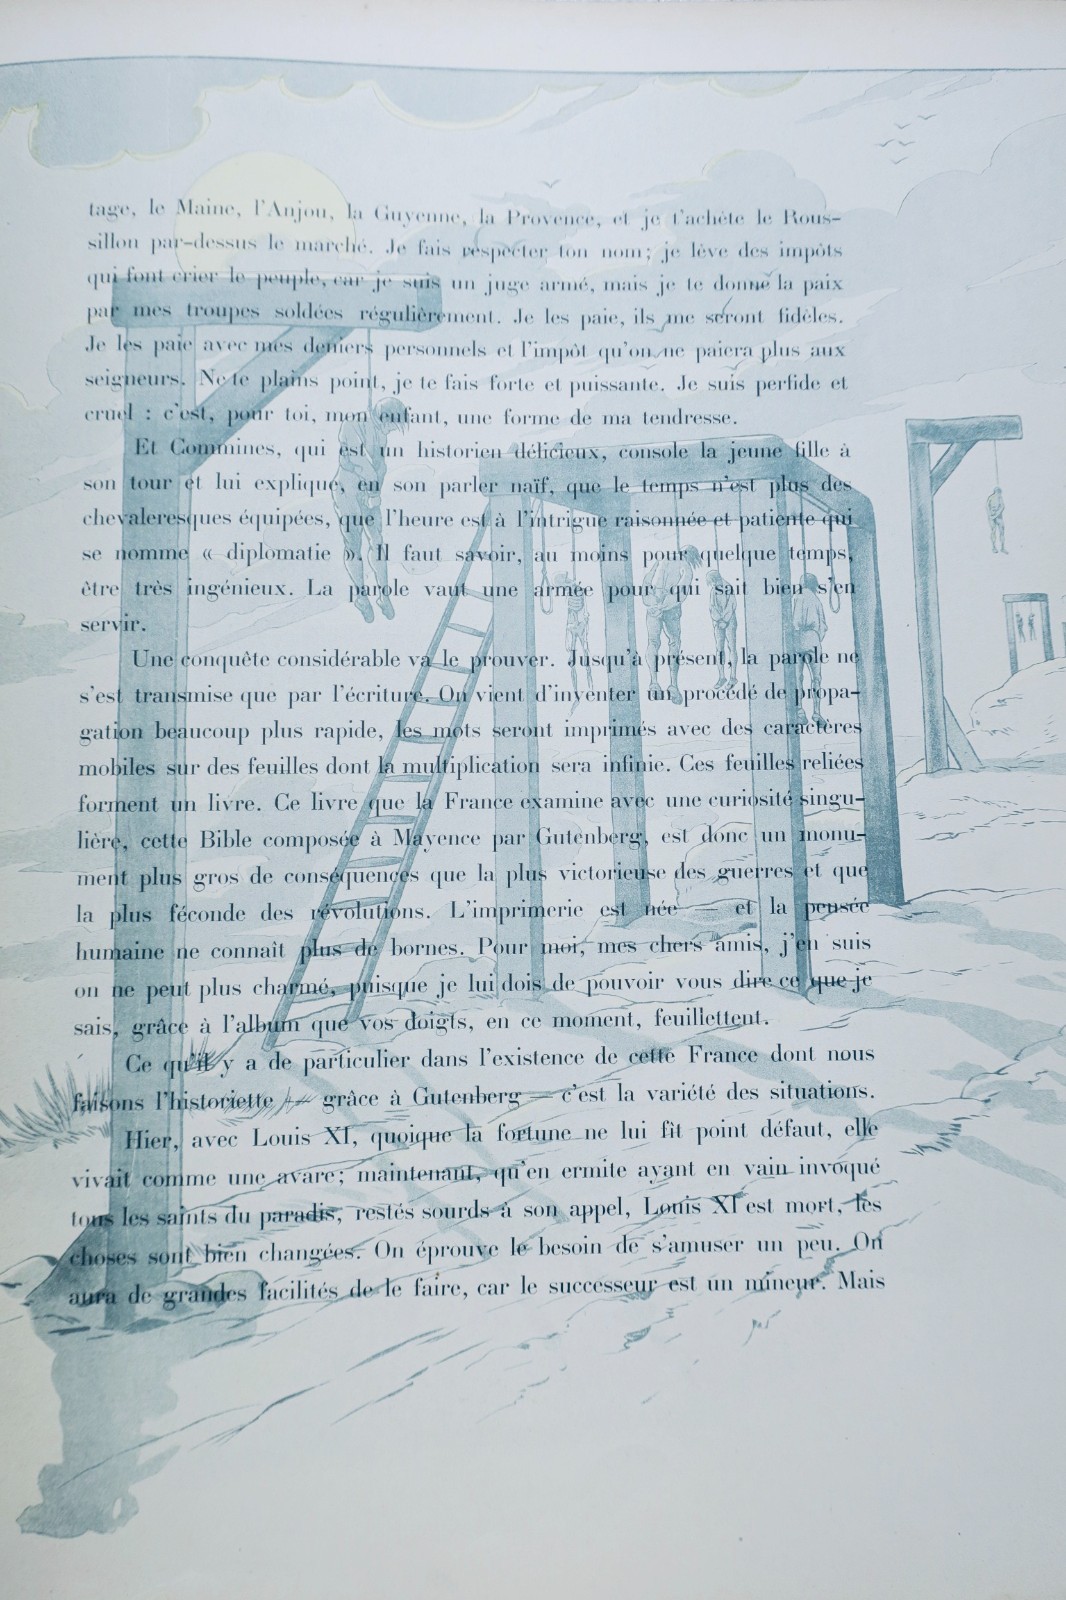 tage, le Maine, l'Anjou, la Guyenne, la Provence, et je t'achète le Rous-
sillon par-dessus le marché. Je fais respecter ton nom; je lève des impôts
qui font crier le peuple, car je suis un juge armé, mais je te donne la paix
par mes troupes soldées régulièrement. Je les paie, ils me seront fidèles.
Je les paie avec mes deniers personnels et l'impôt qu'on ne paiera plus aux
seigneurs. Ne te plains point, je te fais forte et puissante. Je suis perfide et
cruel : c'est, pour toi, mon enfant, une forme de ma tendresse.
Et Commines, qui est un historien délicieux, console la jeune fille à
son tour et lui explique, en son parler naïf, que le temps n'est plus des
chevaleresques équipées, que l'heure est à l'intrigue raisonnée et patiente qui
se nomme « diplomatie ». Il faut savoir, au moins pour quelque temps,
être très ingénieux. La parole vaut une armée pour qui sait bien s'en
servir.
Une conquête considérable va le prouver. Jusqu'à présent, la parole ne
s'est transmise que par l'écriture. On vient d'inventer un procédé de propa-
gation beaucoup plus rapide, les mots seront imprimés avec des caractères
mobiles sur des feuilles dont la multiplication sera infinie. Ces feuilles reliées
forment un livre. Ce livre que la France examine avec une curiosité singu-
lière, cette Bible composée à Mayence par Gutenberg, est donc un monu-
ment plus gros de conséquences que la plus victorieuse des guerres et que
la plus féconde des révolutions. L'imprimerie est née — et la pensée
humaine ne connaît plus de bornes. Pour moi, mes chers amis, j'en suis
on ne peut plus charmé, puisque je lui dois de pouvoir vous dire ce que je
sais, grâce à l'album que vos doigts, en ce moment, feuillettent.
Ce qu'il y a de particulier dans l'existence de cette France dont nous
faisons l'historiette — grâce à Gutenberg — c'est la variété des situations.
Hier, avec Louis XI, quoique la fortune ne lui fît point défaut, elle
vivait comme une avare; maintenant, qu'en ermite ayant en vain invoqué
tous les saints du paradis, restés sourds à son appel, Louis XI est mort, les
choses sont bien changées. On éprouve le besoin de s'amuser un peu. On
aura de grandes facilités de le faire, car le successeur est un mineur. Mais